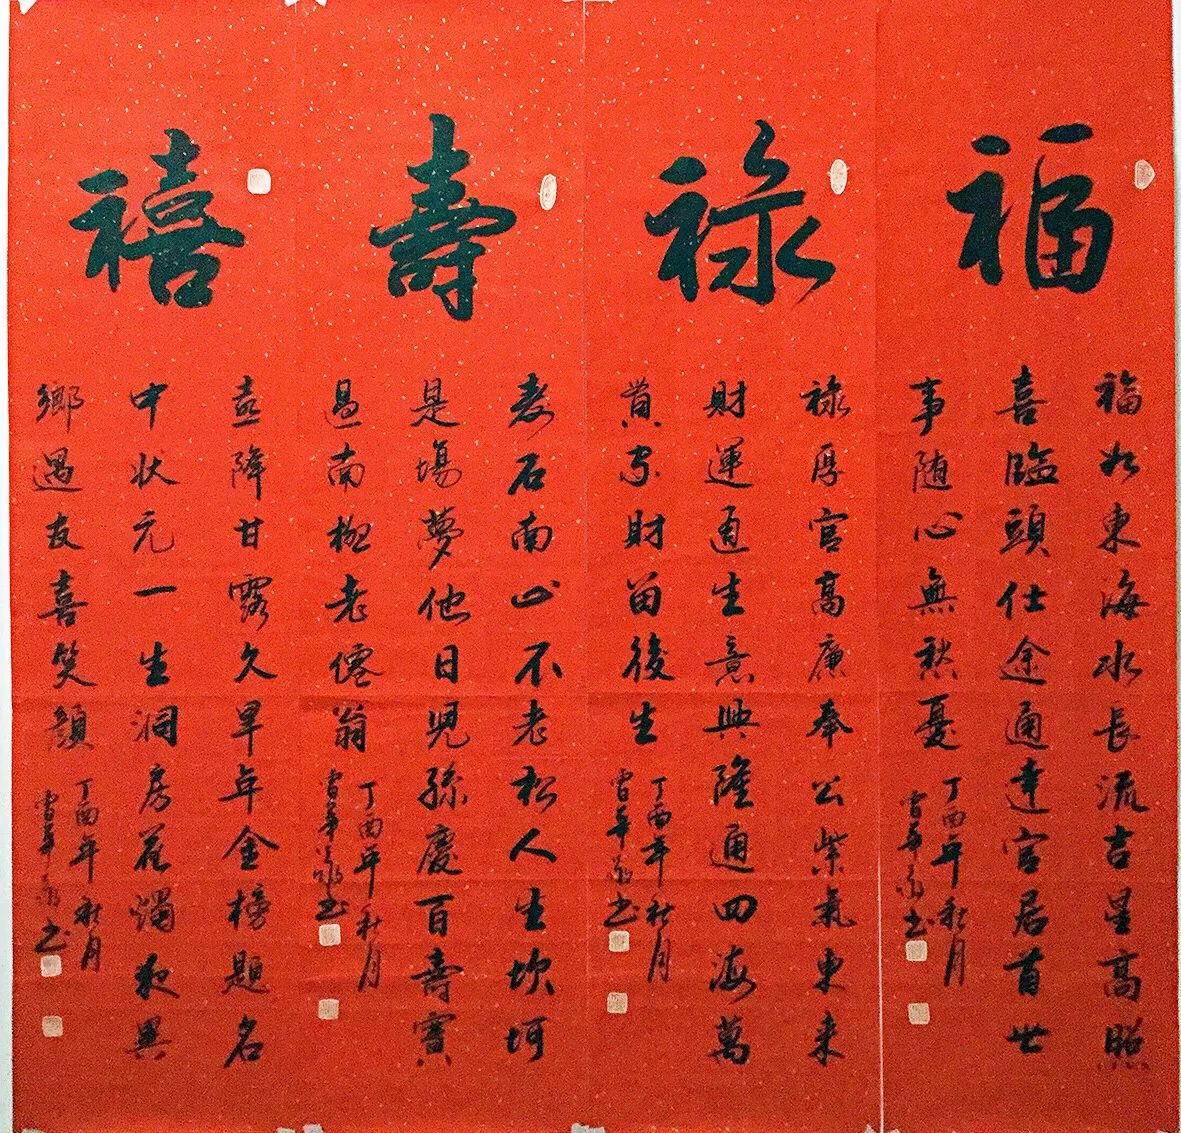 福
福如東海水長流吉星高照
喜臨頭仕途通達官居首世
事随心無愁憂
丁酉年秋月
書
祿
祿厚官高廉奉公紫氣東来
財運通生意興隆通四海萬
貫家財留後生
丁酉年秋月
書
壽
石南山不老松人生坎坷
是場夢他日児孫慶百壽賓
過南極老僊翁
丁酉年秋月
書
禧
喜降甘露久旱年金榜題名
中状元一生洞房花燭夜異
鄉遇友喜笑顏
丁酉年秋月
書